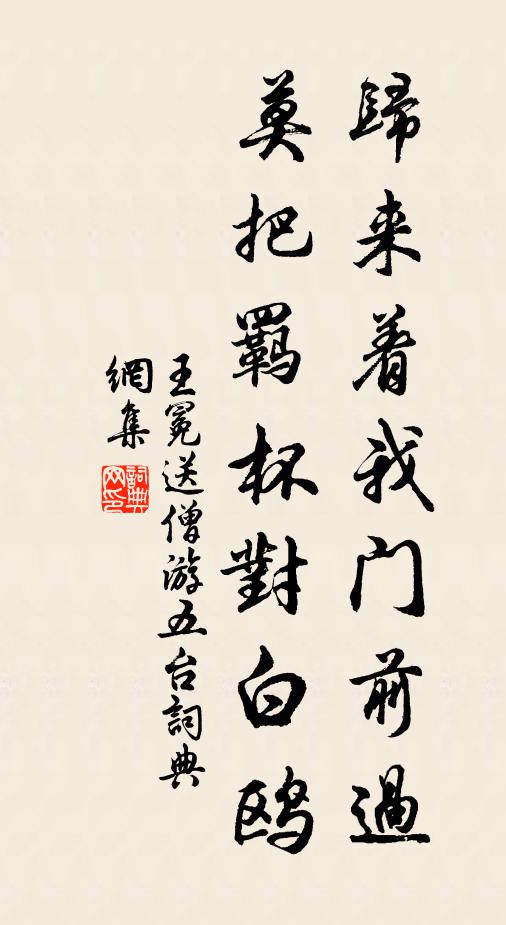 歸来着我門前過
莫把羈杯對白鸥
王冕送僧游五台詞典
網集
詞典網印